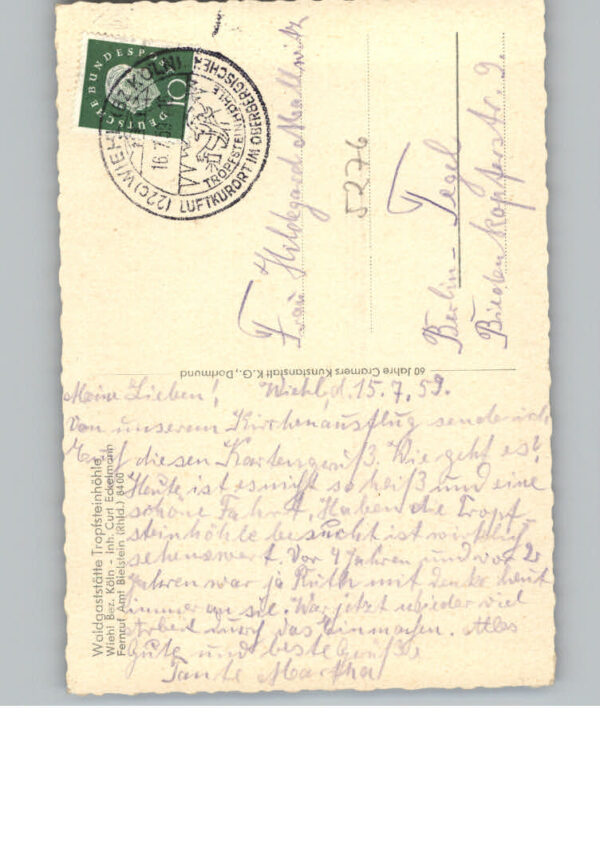 DEUTSCHE BUNDESPOST
10
(22c) WIEHL (BZ KÖLN)
16.7.59
TROPFSTEINHÖHLE
LUFTKURORT IM OBERBERGISCHEN
Frau Hildegard Mallwitz
5276
Berlin - Tegel
Biedenkopferstr. 9.
60 Jahre Cramers Kunstanstalt K.G., Dortmund
Waldgaststätte Tropfsteinhöhle
Wiehl Bez. Köln - Inh. Curt Eckelmann
Fernruf Amt Bielstein (Rhld.) 8400
Meine Lieben! Wiehl, d. 15.7.59.
Von unserem Kirchenausflug sende ich
Euch diesen Kartengruß. Wie geht es?
Heute ist es nicht so heiß und eine
schöne Fahrt. Haben die Tropf-
steinhöhle besucht ist wirklich
sehenswert. Vor 4 Jahren und vor 2
Jahren war ja Ruth mit denke heut
immer an sie. War jetzt wieder viel
Arbeit durch das Einmachen. Alles
Gute und beste Grüße
Tante Martha